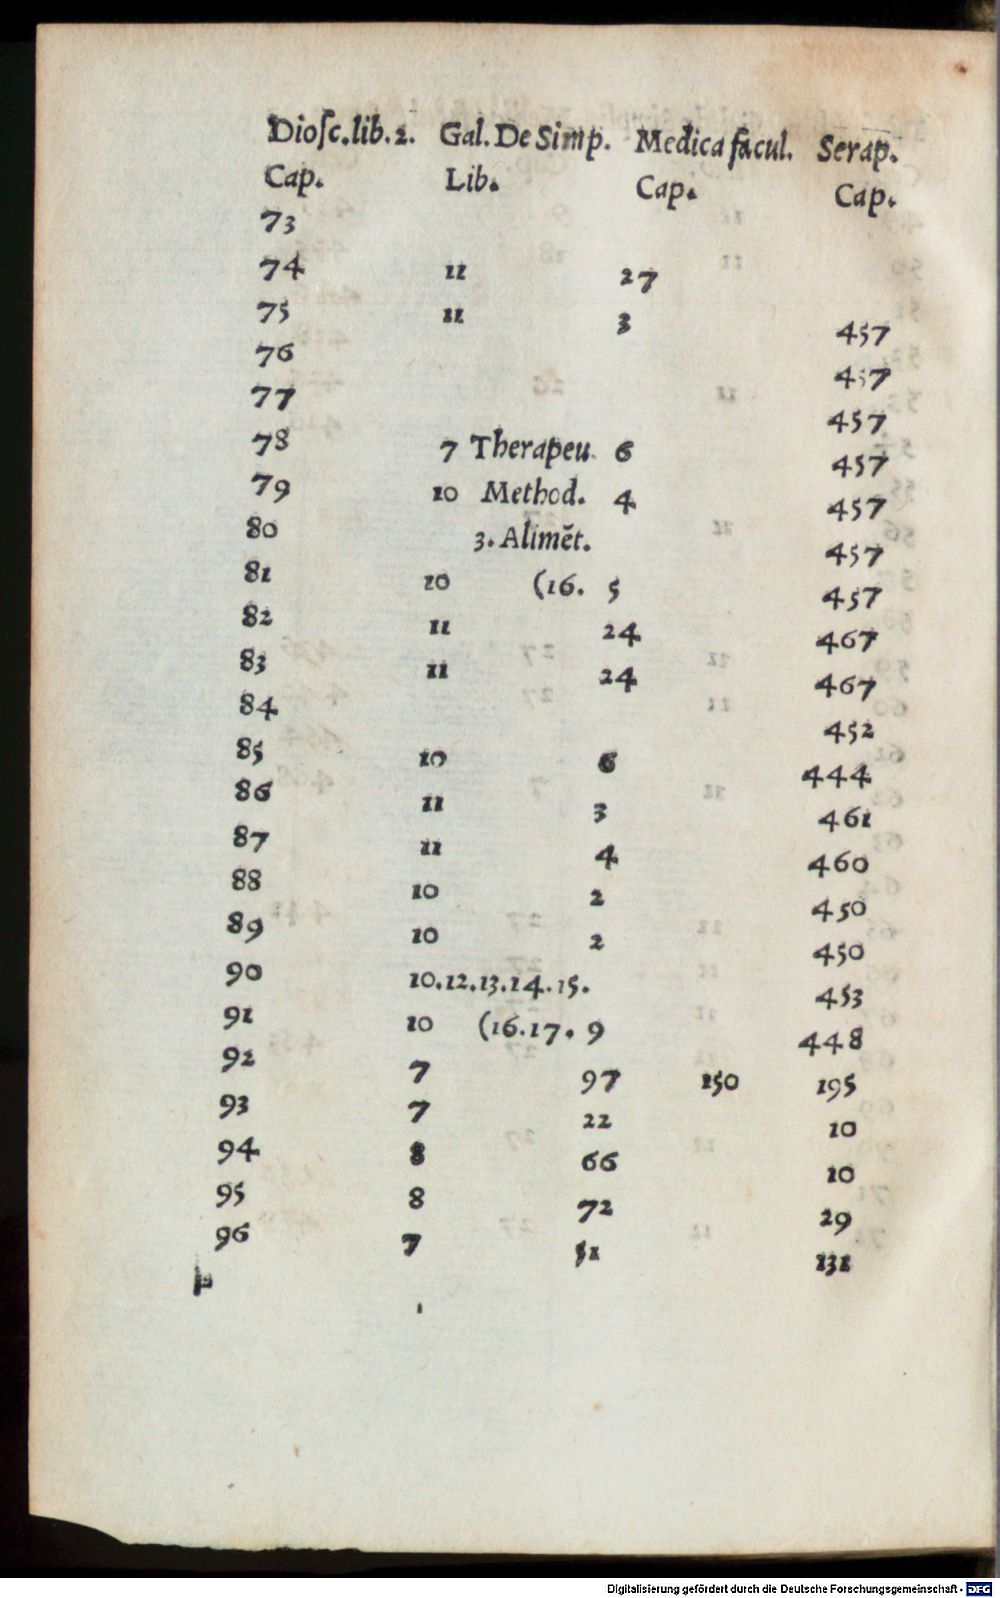 Diosc.lib.2. Gal. De Simp. Medica facul. Serap.
Cap. Lib. Cap. Cap.
73
74 11 27
75 11 3 457
76 457
77 457
78 7 Therapeu. 6 457
79 10 Method. 4 457
80 3. Alimẽt. 457
81 10 (16. 5 457
82 11 24 467
83 11 24 467
84 452
85 10 6 444
86 11 3 461
87 11 4 460
88 10 2 450
89 10 2 450
90 10.12.13.14.15. 453
91 10 (16.17. 9 448
92 7 97 150 195
93 7 22 10
94 8 66 10
95 8 72 29
96 7 51 131
Digitalisierung gefördert durch die Deutsche Forschungsgemeinschaft - DFG